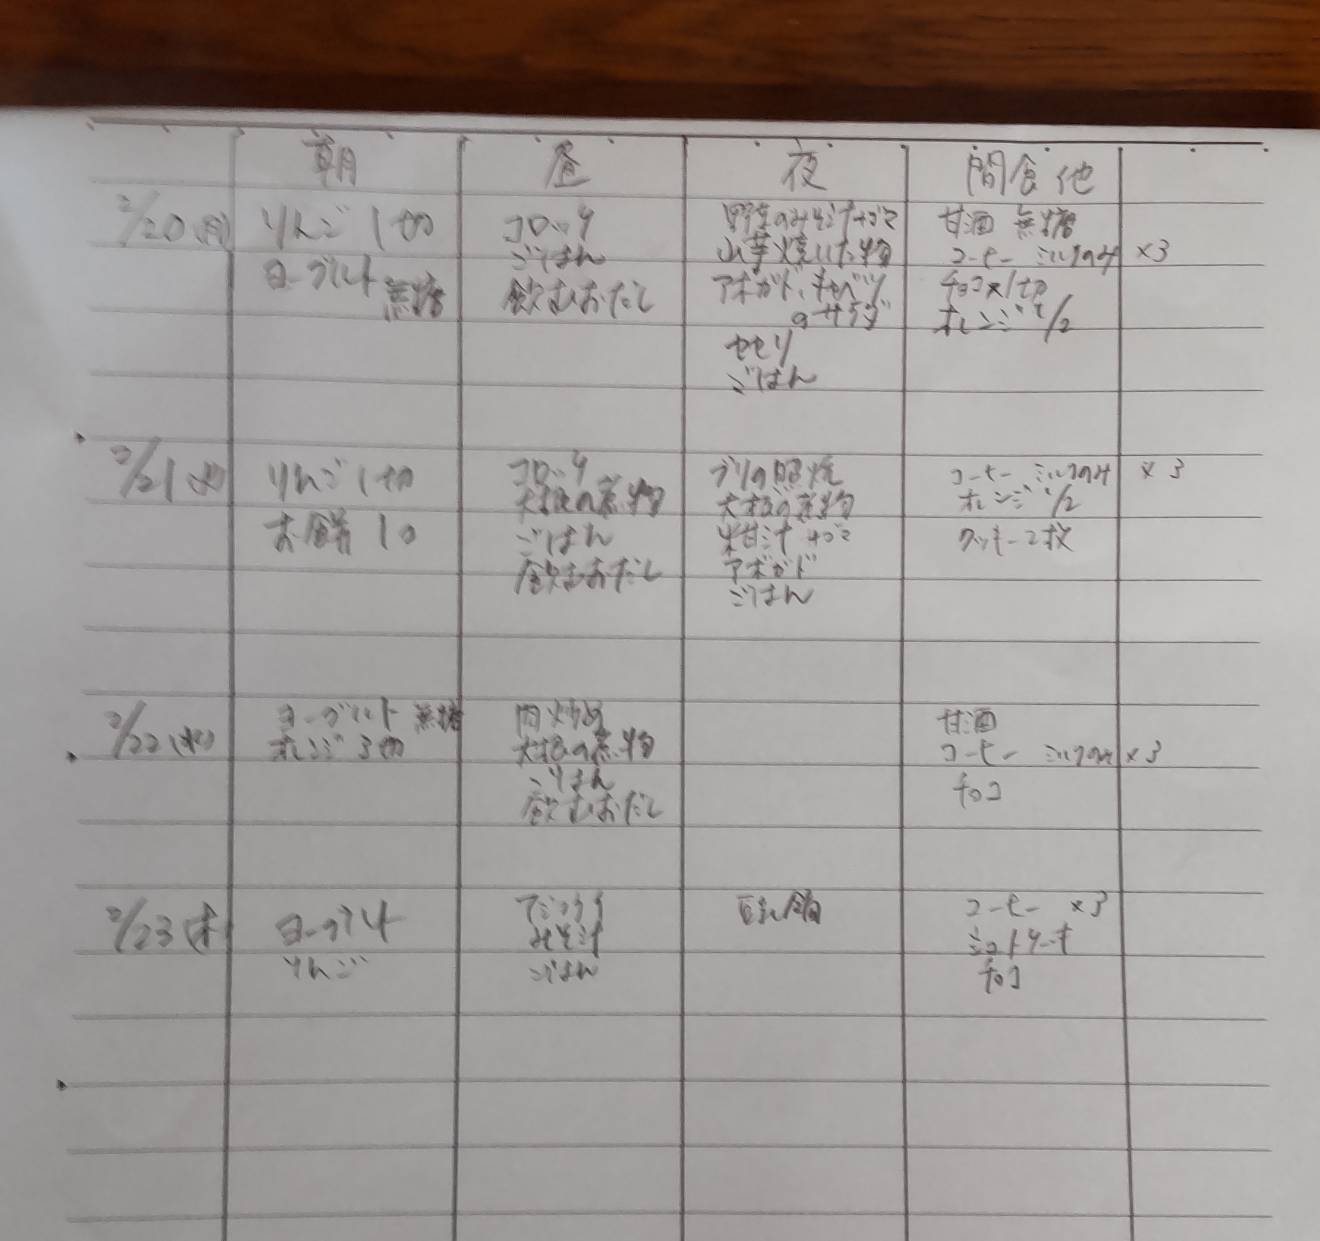 朝 昼 夜 間食 他
2/20(月) りんご 1切
ヨーグルト 無糖
コロッケ
ごはん
飲むおだし
野菜のみそ汁
山芋焼いた物
アボガド、キャベツ
のサラダ
セセリ
ごはん
甘酒 無糖
コーヒー ミルクのみ ×3
チョコ大1切
オレンジ 1/2
2/21(火) りんご 1切
お餅 1コ
コロッケ
大根の煮物
ごはん
飲むおだし
ブリの照焼
大根の煮物
粕汁
アボガド
ごはん
コーヒー ミルクのみ ×3
オレンジ 1/2
クッキー 2枚
2/22(水) ヨーグルト 無糖
オレンジ 3切
肉炒め
大根の煮物
ごはん
飲むおだし
甘酒
コーヒー ミルクのみ ×3
チョコ
2/23(木) ヨーグルト
りんご
アジフライ
みそ汁
ごはん
コーヒー ×3
ショートケーキ
チョコ